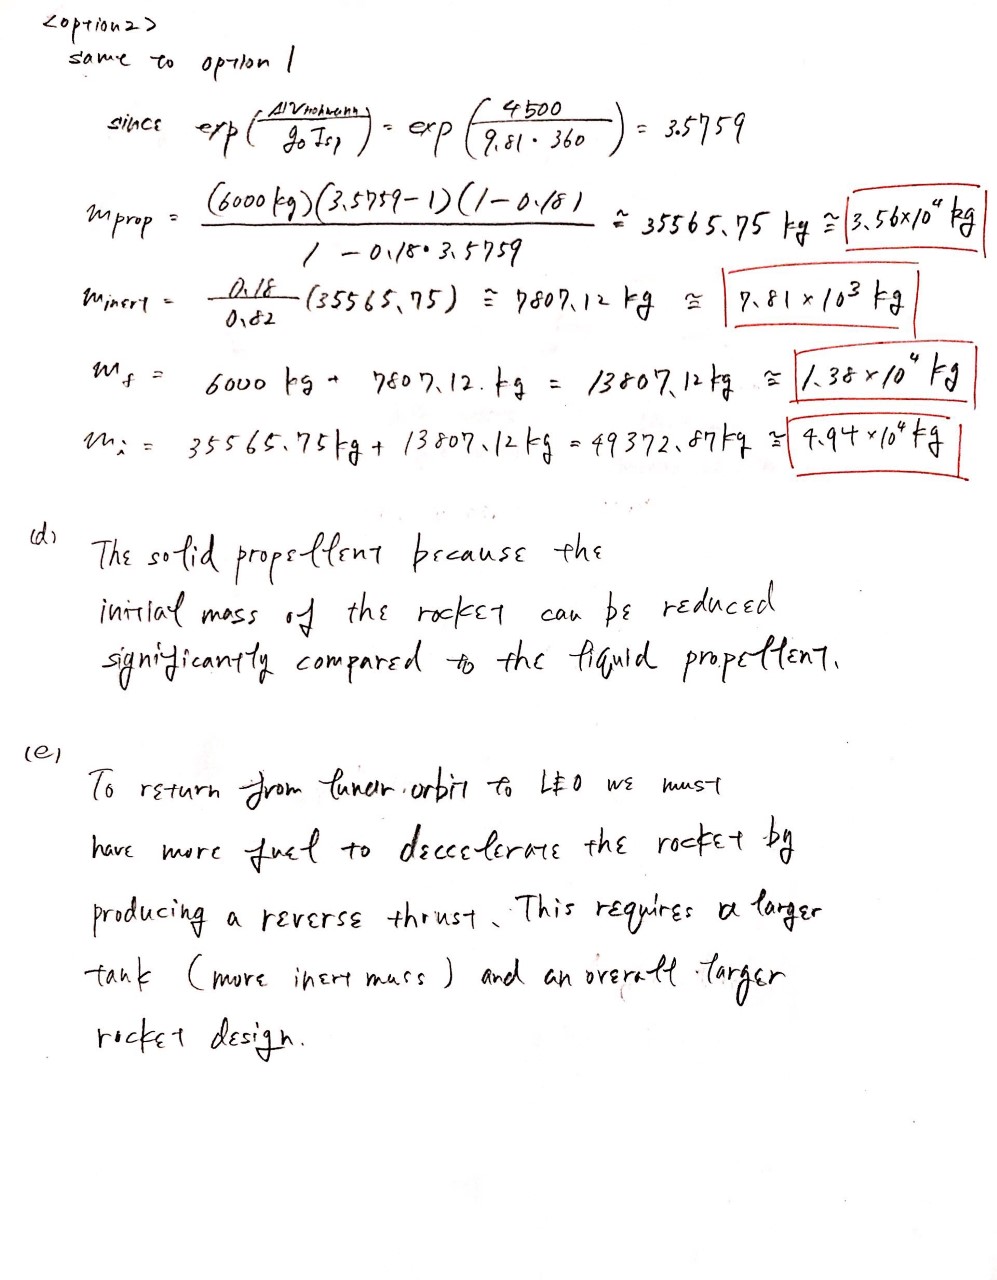 <option2>
same to option 1
since exp(ΔV_Hohmann / g₀ Isp) = exp(4500 / 9.81 · 360) = 3.5759
m_prop = (6000 kg)(3.5759-1)(1-0.18) / 1 - 0.18 · 3.5759 ≅ 35565.75 kg ≅ 3.56×10⁴ kg
m_inert = 0.18/0.82 (35565.75) ≅ 7807.12 kg ≅ 7.81 × 10³ kg
m_f = 6000 kg + 7807.12 kg = 13807.12 kg ≅ 1.38×10⁴ kg
m_i = 35565.75 kg + 13807.12 kg = 49372.87 kg ≅ 4.94×10⁴ kg
(d) The solid propellent because the
initial mass of the rocket can be reduced
significantly compared to the liquid propellent.
(e) To return from lunar orbit to LEO we must
have more fuel to deccelerate the rocket by
producing a reverse thrust. This requires a larger
tank (more inert mass) and an overall larger
rocket design.